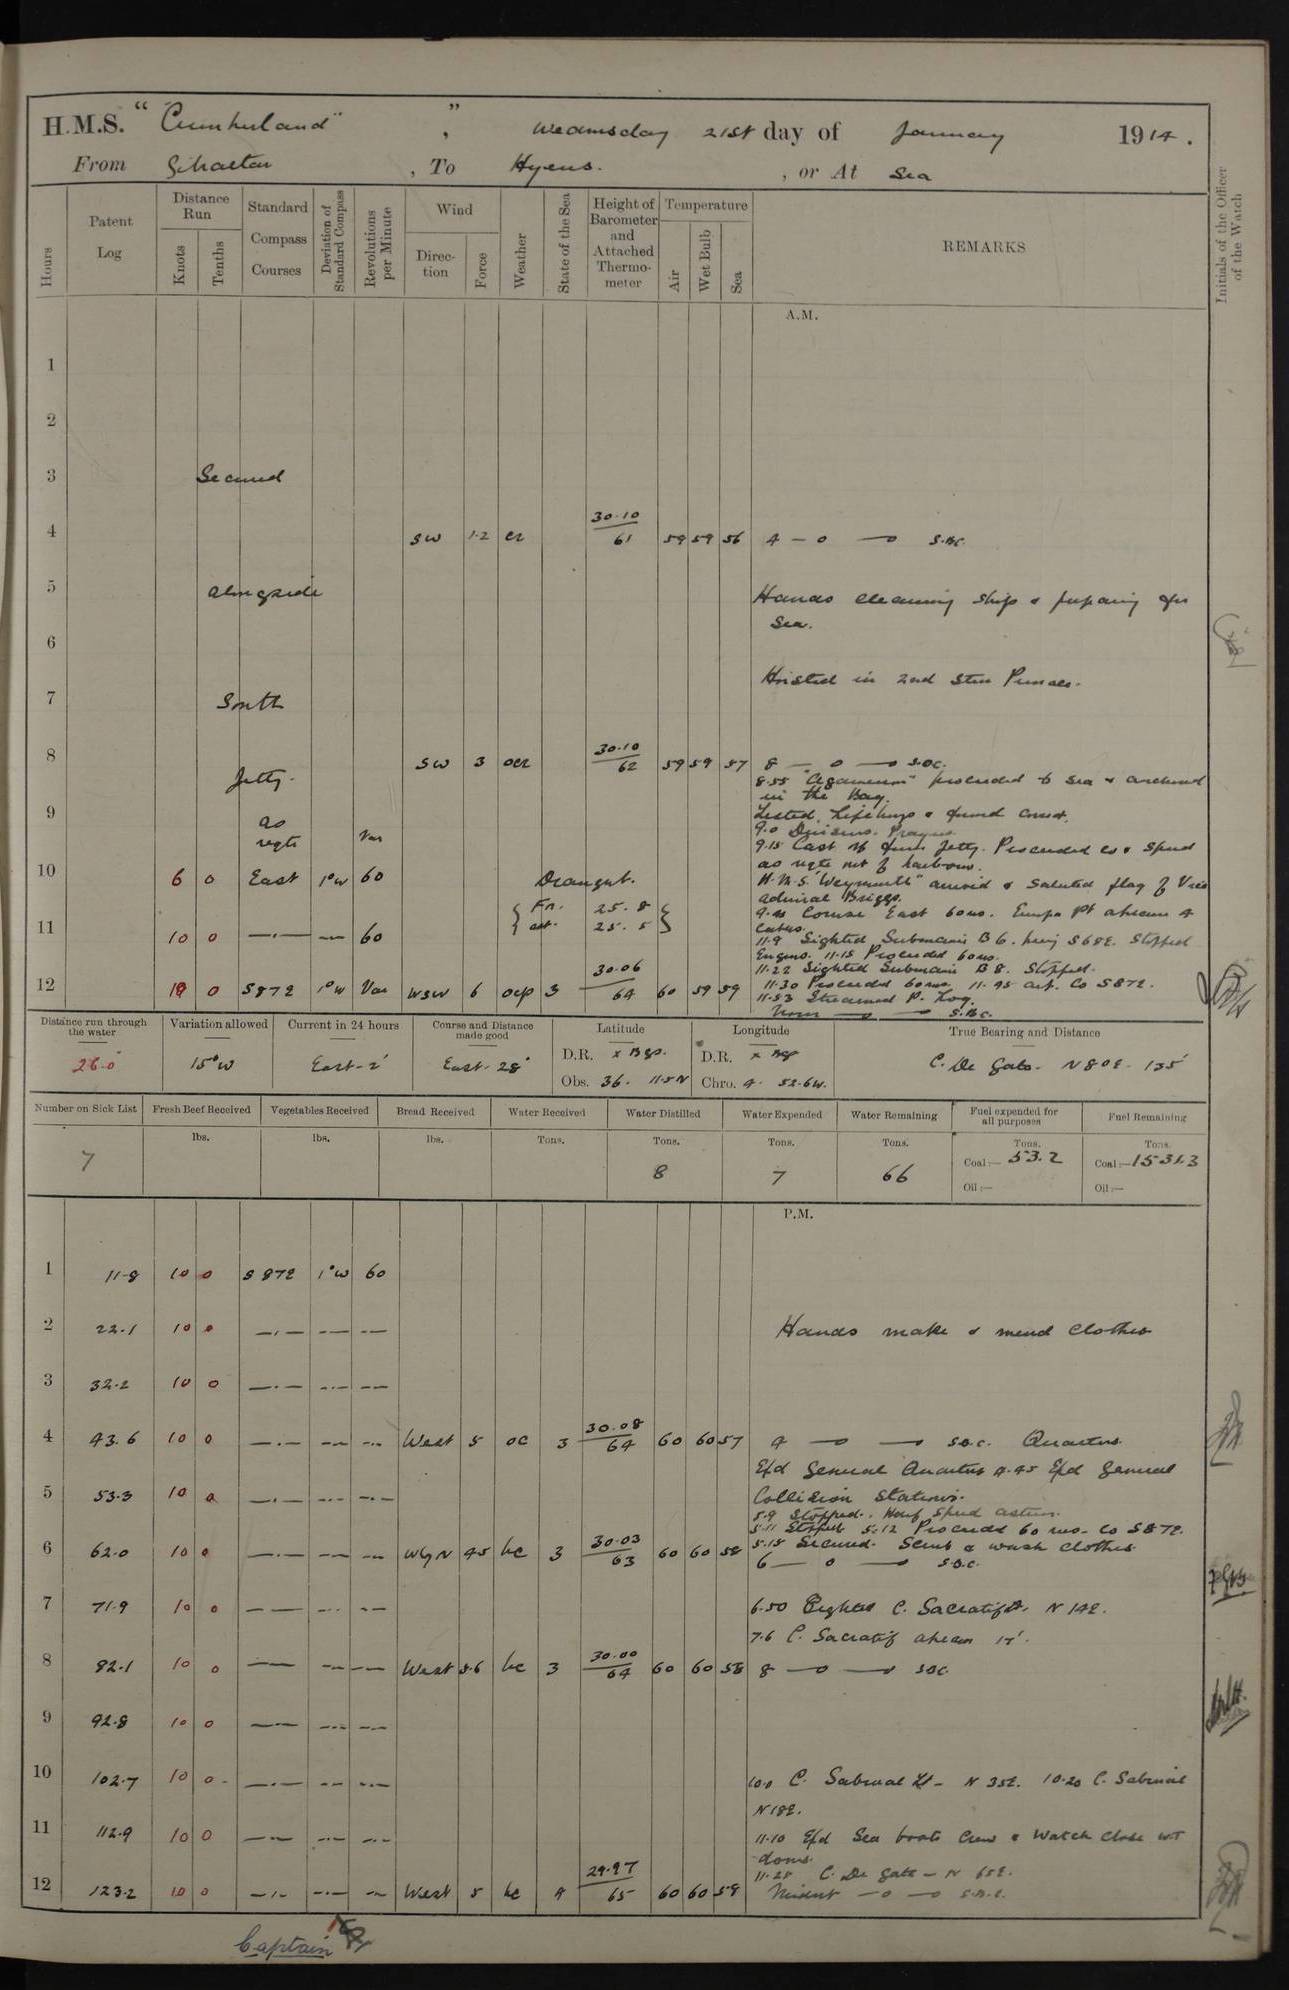 H.M.S. "Cumberland" , Wednesday 21st day of January 1914.
From Gibraltar , To Hyeres. , or At Sea
Hours
Patent Log
Distance Run
Knots
Tenths
Standard Compass Courses
Deviation of Standard Compass
Revolutions per Minute
Wind
Direction
Force
Weather
State of the Sea
Height of Barometer and Attached Thermometer
Temperature
Air
Wet Bulb
Sea
REMARKS
Initials of the Officer of the Watch
A.M.
1
2
3 Secured
4 SW 1.2 30.10 61 59 59 56 4 — o — S.B.C.
5 alongside Hands cleaning ship & preparing for
Sea.
6
Hoisted in 2nd Stm Pinnace.
7 South
8 SW 3 30.10 62 59 59 57 8 — o — S.B.C.
Jetty.
8.55 "Agamemnon" proceeded to sea & anchored
in the Bay.
9 Tested Lifebuoys & found correct.
as reqte Var
9.0 Divisions. Prayers.
9.15 Cast off from Jetty. Proceeded co & speed
as reqte out of harbour.
10 6 0 East 1°W 60 Draught.
H.M.S. "Weymouth" arrived & saluted flag of Vice
Admiral Briggs.
For. 25.8
aft. 25.5
Course East 60 revs. Europa Pt abeam 4
cables.
11 10 0 —.— — 60
11.9 Sighted Submarine B 6. S68E. Stopped
Engines. 11.15 Proceeded 60 revs.
11.22 Sighted Submarine B 8. Stopped.
12 10 0 S87E 1°W Var WSW 6 ocp 3 30.06 64 60 59 59
11.30 Proceeded 60 revs. 11.45 a/c. Co S87E.
11.53 Streamed P. Log.
Noon — o — S.B.C.
Distance run through the water
Variation allowed
Current in 24 hours
Course and Distance made good
Latitude
Longitude
True Bearing and Distance
26.0
15°W
East - 2'
East - 28'
D.R. x Bgs.
Obs. 36. 11.5N
D.R. x Bgs
Chro. 4. 52.6W.
C. De Gata. N80E. 135'
Number on Sick List
Fresh Beef Received
Vegetables Received
Bread Received
Water Received
Water Distilled
Water Expended
Water Remaining
Fuel expended for all purposes
Fuel Remaining
lbs.
lbs.
lbs.
Tons.
Tons.
Tons.
Tons.
Tons.
Tons.
7
8
7
66
Coal:— 53.2
Oil:—
Coal:— 1531.3
Oil:—
P.M.
1 11.8 10 0 S 87E 1°W 60
2 22.1 10 0 —.— —.— —.— Hands make & mend clothes
3 32.2 10 0 —.— —.— —.—
4 43.6 10 0 —.— —.— —.— West 5 oc 3 30.08 64 60 60 57 4 — o — S.B.C. Quarters
Ex/d General Quarters 4.45 Ex/d General
5 53.3 10 0 —.— —.— —.— Collision Stations.
5.9 Stopped. Half speed astern.
5.11 Stopped 5.12 Proceeded 60 revs. Co S87E.
6 62.0 10 0 —.— —.— —.— WbyN 45 bc 3 30.03 63 60 60 58 5.15 Secured. Scrub & wash clothes
6 — o — S.B.C.
7 71.9 10 0 —.— —.— —.— 6.50 Sighted C. Sacratif Lt. N 14E.
7.6 C. Sacratif abeam 17'.
8 82.1 10 0 —.— —.— —.— West 5.6 bc 3 30.00 64 60 60 58 8 — o — S.B.C.
9 92.8 10 0 —.— —.— —.—
10 102.7 10 0 —.— —.— —.— 10.0 C. Sabinal Lt - N 35E. 10.20 C. Sabinal
N18E.
11 112.9 10 0 —.— —.— —.— 11.10 Ex/d Sea boats Crew & Watch close WT
doors.
11.28 C. De Gata - N 65E.
12 123.2 10 0 —.— —.— —.— West 5 bc 4 29.97 65 60 60 59 Midnt — o — S.B.C.
Captain